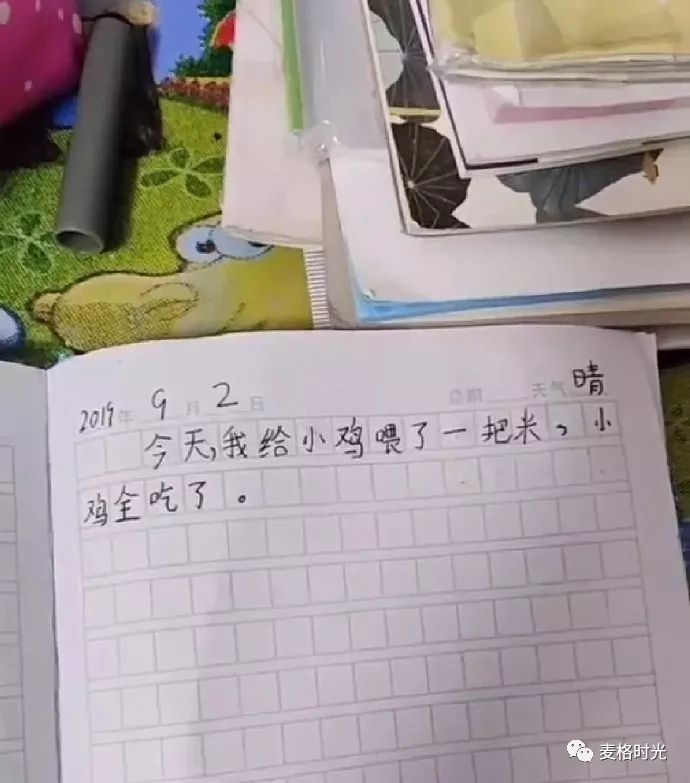 2019年 9月 2日 星期 天气 晴
今天,我给小鸡喂了一把米,小
鸡全吃了。
麦格时光